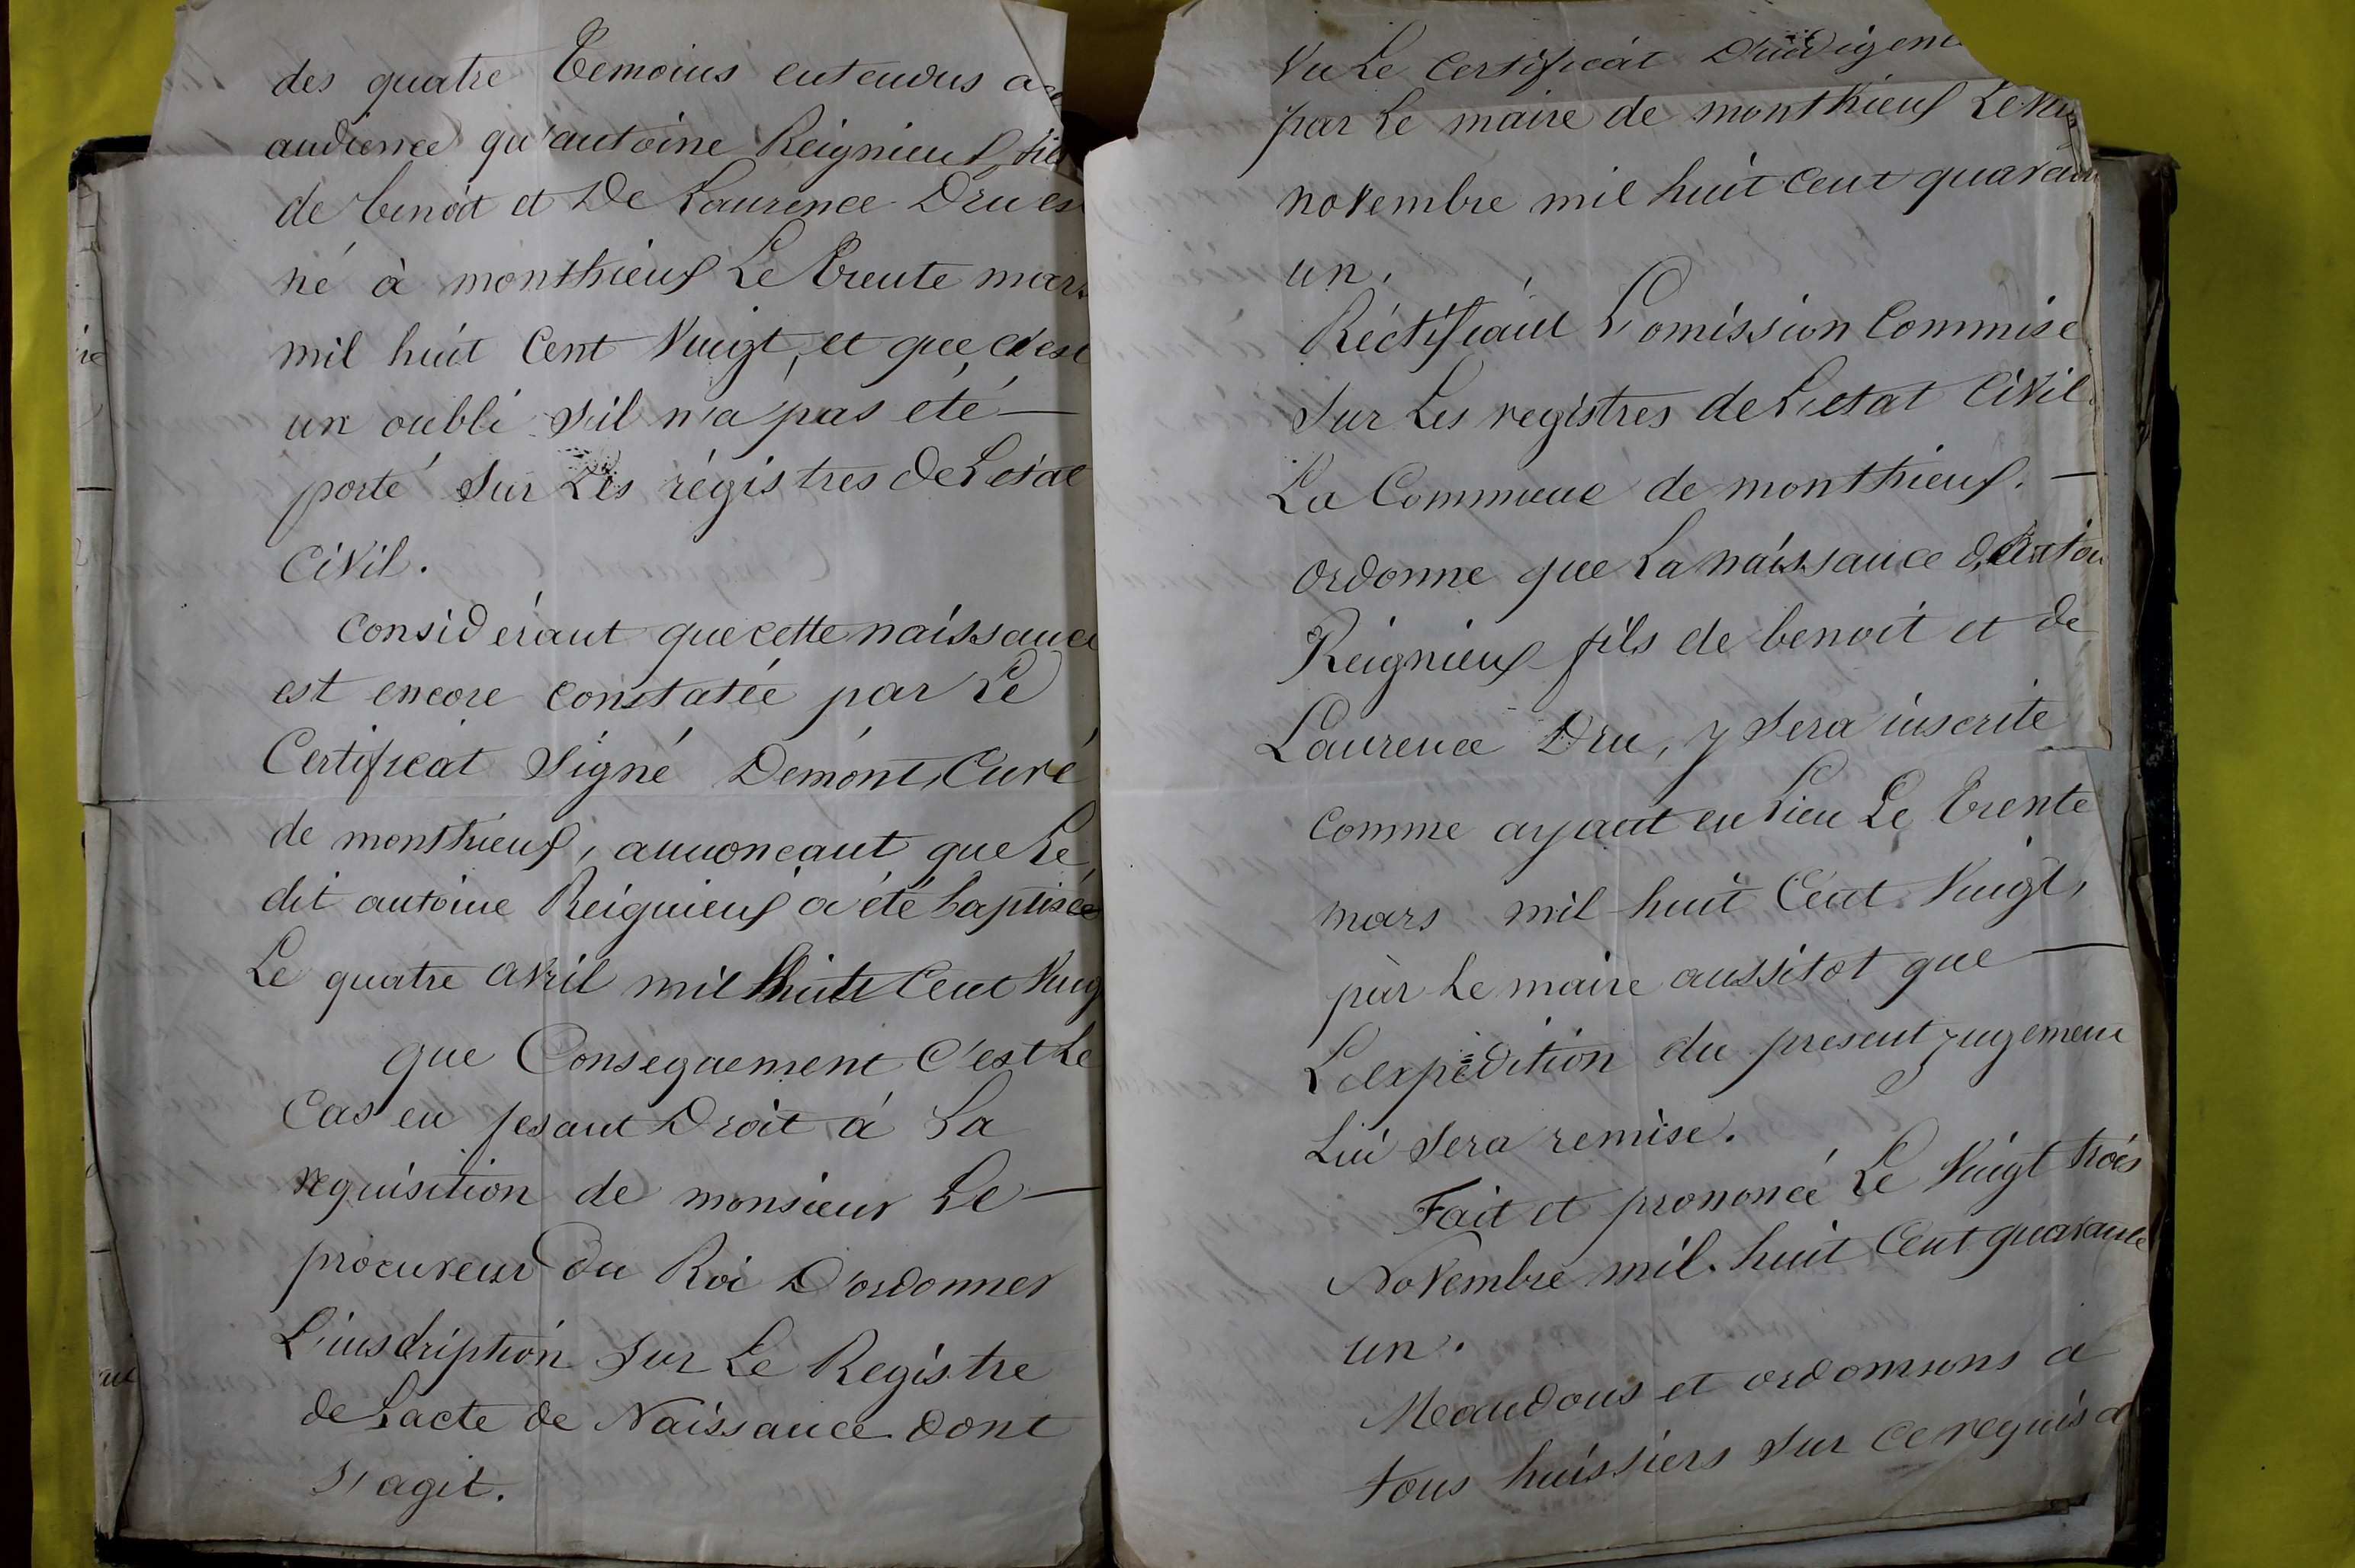 des quatre temoins entendus a
audience qu'antoine Reignieux fils
de benoit et De Laurence Dru est
né à monthieux Le trente mars
mil huit Cent Vingt, et que c'est
un oubli s'il n'a pas été —
porté sur Les régistres de L'etat
Civil.
Considérant que cette naissance
est encore constatée par Le
Certificat signé Demont, Curé
de monthieux, annonçant que Le
dit antoine Reignieux a été baptisée
Le quatre avril mil huit Cent Ving
que Consequement C'est Le
Cas en fesant Droit á La
requisition de monsieur Le —
procureur du Roi D'ordonner
L'inscription sur Le Registre
de L'acte de Naissance dont
s'agit.
Vu Le Certificat D'indigenc
par Le maire de monthieux Le
novembre mil huit Cent quaran
un.
Réctifiant L'omission Commise
sur Les registres de L'etat Civil
La Commune de monthieux. —
Ordonne que La naissance d'antoi
Reignieux fils de benoit et de
Laurence Dru, y sera inscrite
Comme ayant eu Lieu Le trente
mars mil huit Cent Vingt,
par Le maire aussitot que —
L'expédition du present jugement
Lui sera remise.
Fait et prononcé Le Vingt trois
Novembre mil huit Cent quarante
un.
Mandons et ordonnons a
tous huissiers sur ce requis a